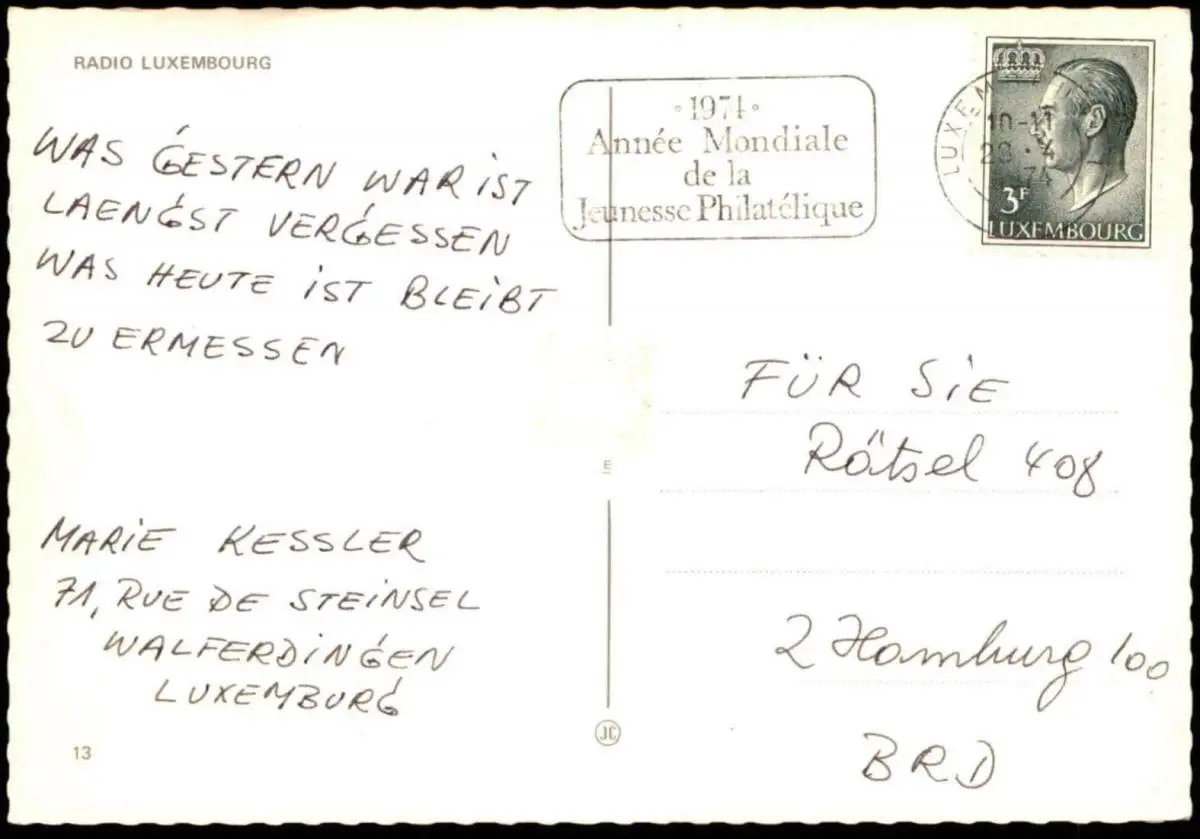 RADIO LUXEMBOURG
WAS GESTERN WAR IST
LAENGST VERGESSEN
WAS HEUTE IST BLEIBT
ZU ERMESSEN
MARIE KESSLER
71, RUE DE STEINSEL
WALFERDINGEN
LUXEMBURG
13
E
JC
1974
Année Mondiale
de la
Jeunesse Philatélique
LUXEM
10-11
74
3F
LUXEMBOURG
FÜR SIE
Rätsel 408
2 Hamburg 100
BRD